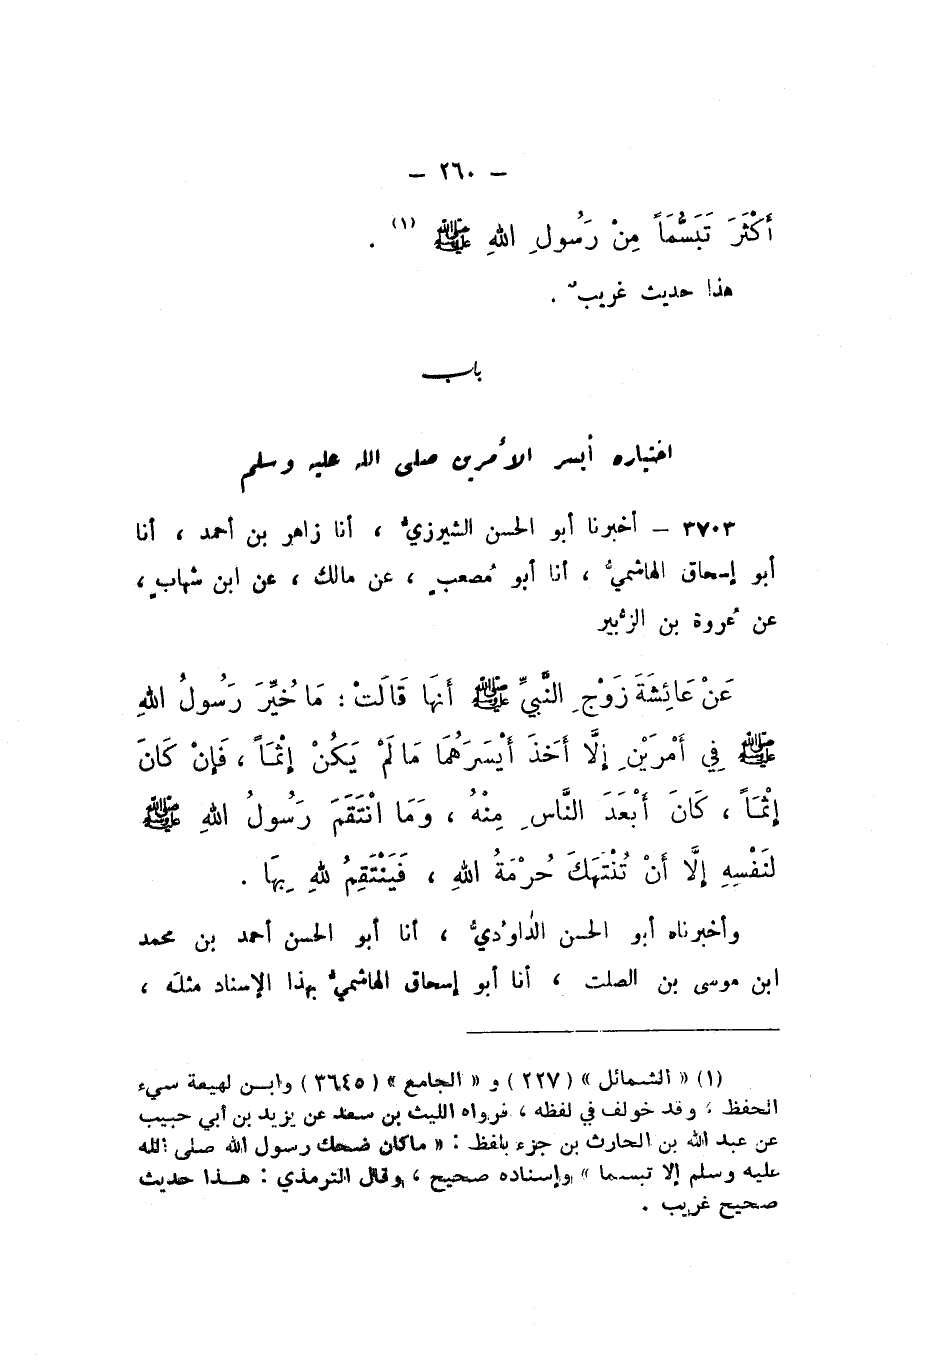 - ٢٦٠ -
أَكْثَرَ تَبَسُّمَاً مِنْ رَسُولِ اللهِ ﷺ (١) .
هذا حديث غريبٌ .
باب
اختياره أيسر الأمرين صلى الله عليه وسلم
٣٧٠٣ - أخبرنا أبو الحسن الشيرزيُّ ، أنا زاهر بن أحمد ، أنا
أبو إسحاق الهاشميُّ ، أنا أبو مُصعبٍ ، عن مالك ، عن ابن شهابٍ ،
عن عُروة بن الزُّبير
عَنْ عَائِشَةَ زَوْجِ النَّبِيِّ ﷺ أَنَّهَا قَالَتْ : مَا خُيِّرَ رَسُولُ اللهِ
ﷺ فِي أَمْرَيْنِ إِلَّا أَخَذَ أَيْسَرَهُمَا مَا لَمْ يَكُنْ إِثْمَاً ، فَإِنْ كَانَ
إِثْمَاً ، كَانَ أَبْعَدَ النَّاسِ مِنْهُ ، وَمَا انْتَقَمَ رَسُولُ اللهِ ﷺ
لنَفْسِهِ إِلَّا أَنْ تُنْتَهَكَ حُرْمَةُ اللهِ ، فَيَنْتَقِمُ للهِ بِهَا .
وأخبرناه أبو الحسن الدَّاوُديُّ ، أنا أبو الحسن أحمد بن محمد
ابن موسى بن الصلت ، أنا أبو إسحاق الهاشميُّ بهذا الإسناد مثلَه ،
(١) « الشمائل » (٢٢٧) و « الجامع » (٣٦٤٥) وابن لهيعة سيء
الحفظ ، وقد خولف في لفظه ، فرواه الليث بن سعد عن يزيد بن أبي حبيب
عن عبد الله بن الحارث بن جزء بلفظ : « ماكان ضحك رسول الله صلى الله
عليه وسلم إلا تبسما » وإسناده صحيح ، وقال الترمذي : هذا حديث
صحيح غريب .